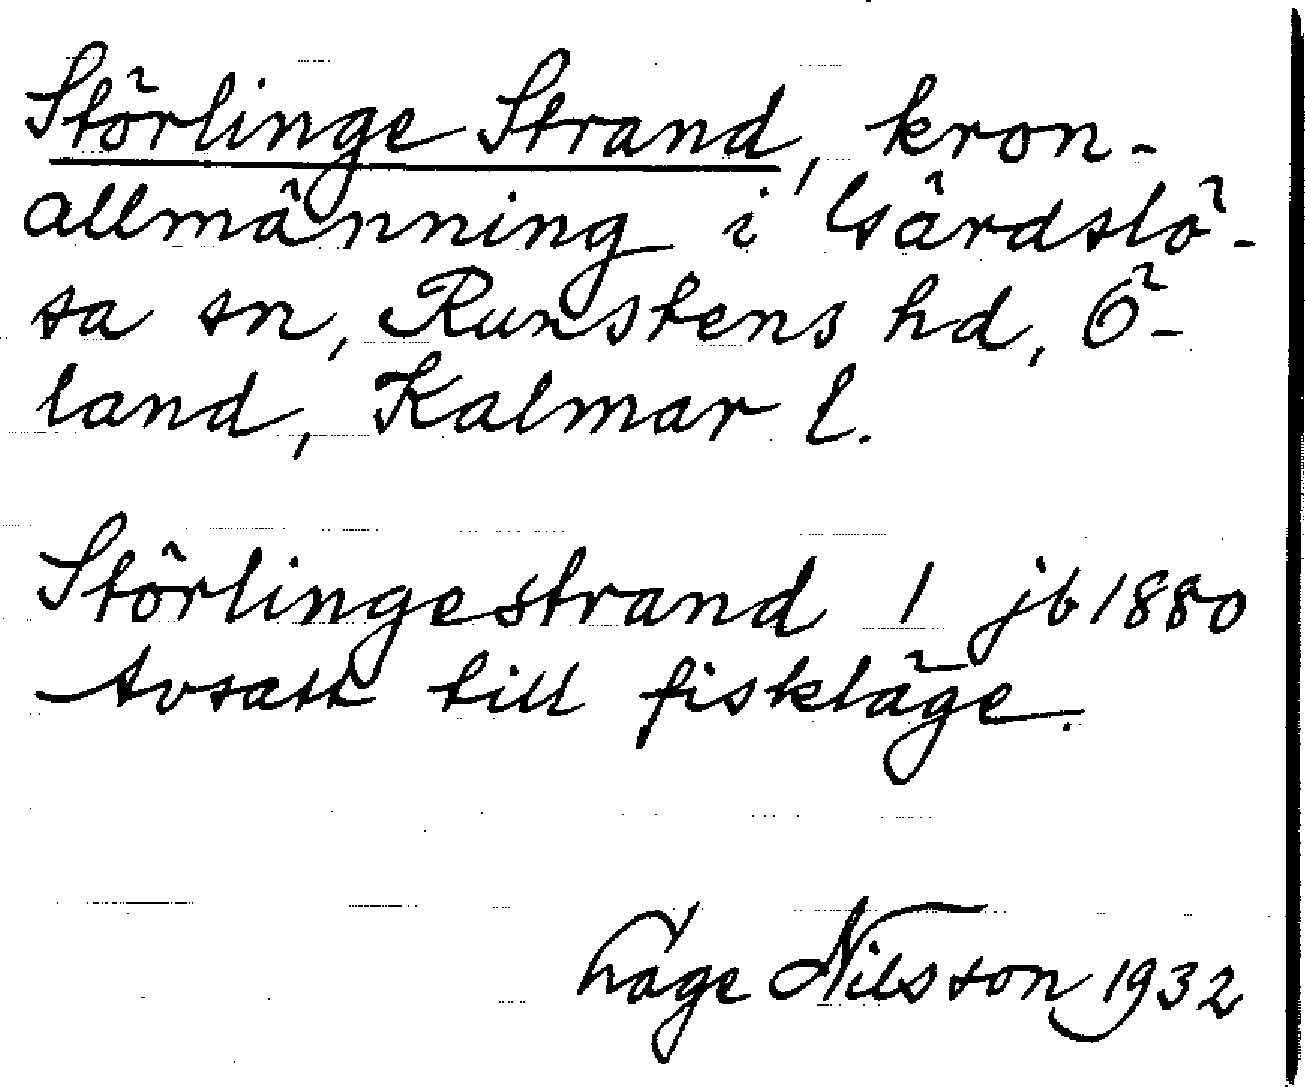 Störlinge Strand, kron-
allmänning i Gärdslö-
sa sn, Runstens hd, Ö-
land, Kalmar l.
Störlingestrand 1 jb 1880
Avsatt till fiskläge.
Nilsson 1932